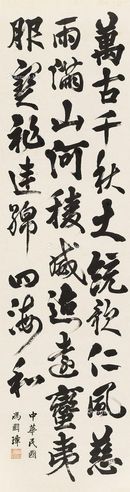 萬古千秋大統歌仁風慈
雨滿山河稜威遠蠻夷
服寶祚連綿四海和
中華民國
馮國璋